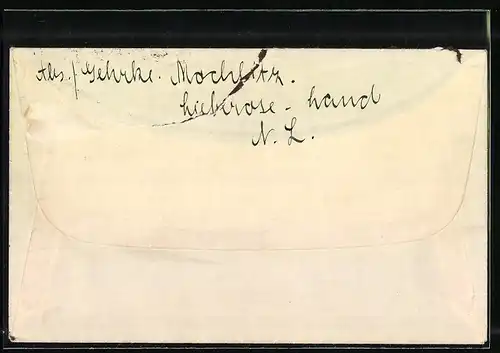 Abs. / Gehrke. Mochlitz.
Lieberose - Land
N. L.